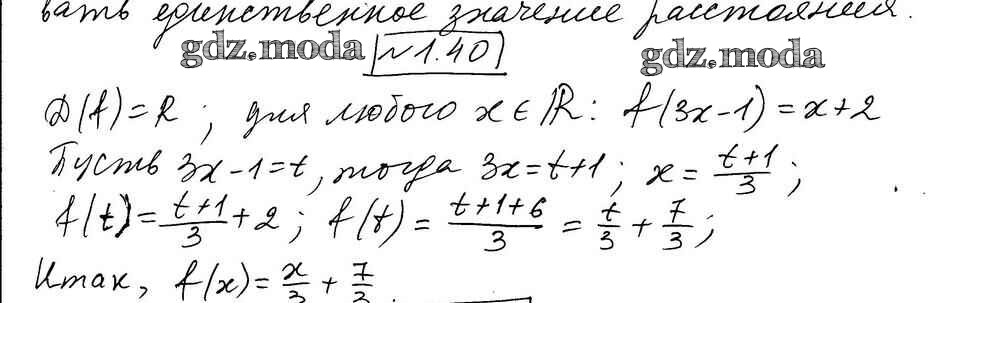 вать единственное значение расстояния.
gdz.moda №1.40 gdz.moda
D(f)=R; для любого x∈R: f(3x-1)=x+2
Пусть 3x-1=t, тогда 3x=t+1; x=\frac{t+1}{3};
f(t)=\frac{t+1}{3}+2; f(t)=\frac{t+1+6}{3}=\frac{t}{3}+\frac{7}{3};
Итак, f(x)=\frac{x}{3}+\frac{7}{3}.